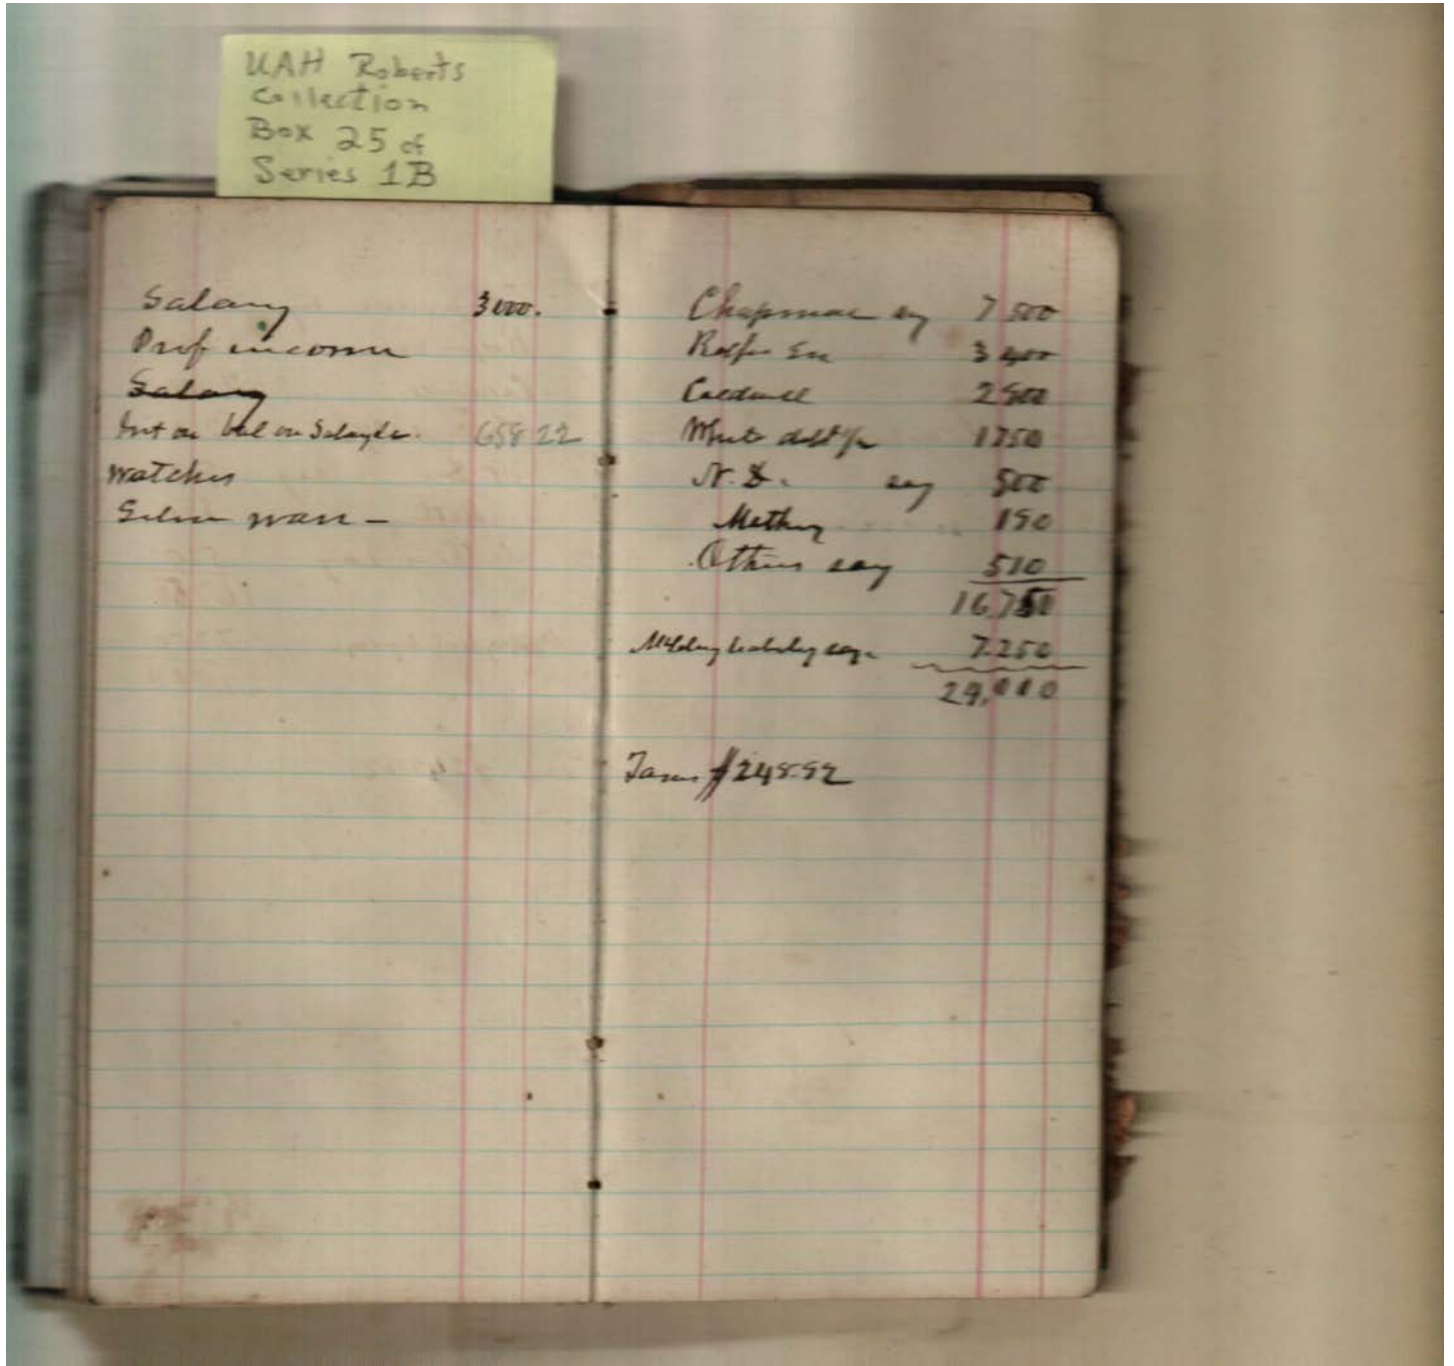 UAH Roberts
Collection
Box 25 of
Series 1B
Salary 3000.
Prof income
Salary
Int on bal on Salary &c. 658 22
Watches
Silver ware -
Chapman say 7 500
3
Caldwell 2500
1750
N. D. say 500
150
Others say 510
16,750
say 7.250
24,000
Taxes $248.92